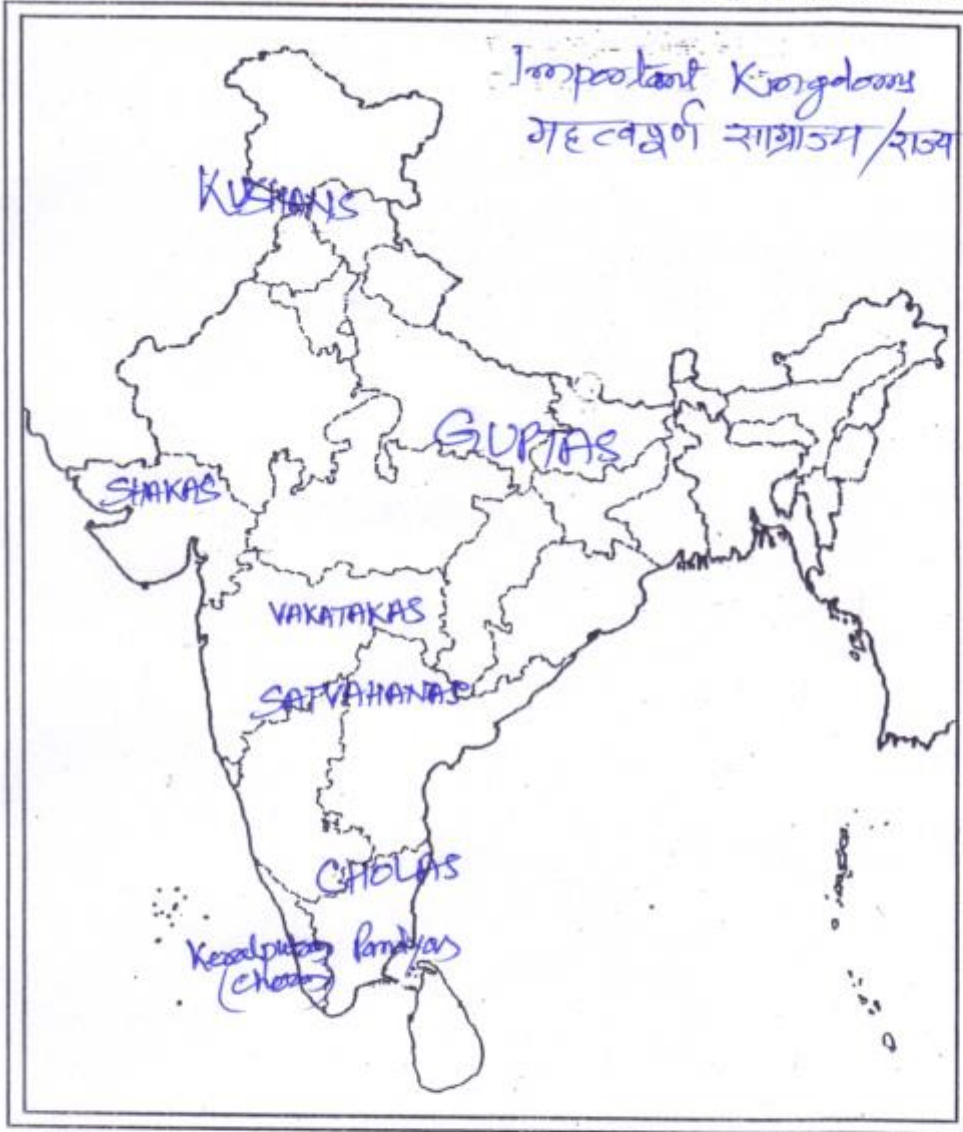 Important Kingdoms
महत्वपूर्ण साम्राज्य /राज्य
KUSHANS
GUPTAS
SHAKAS
VAKATAKAS
SATVAHANAS
CHOLAS
Keralputras Pandyas
(Cheras)